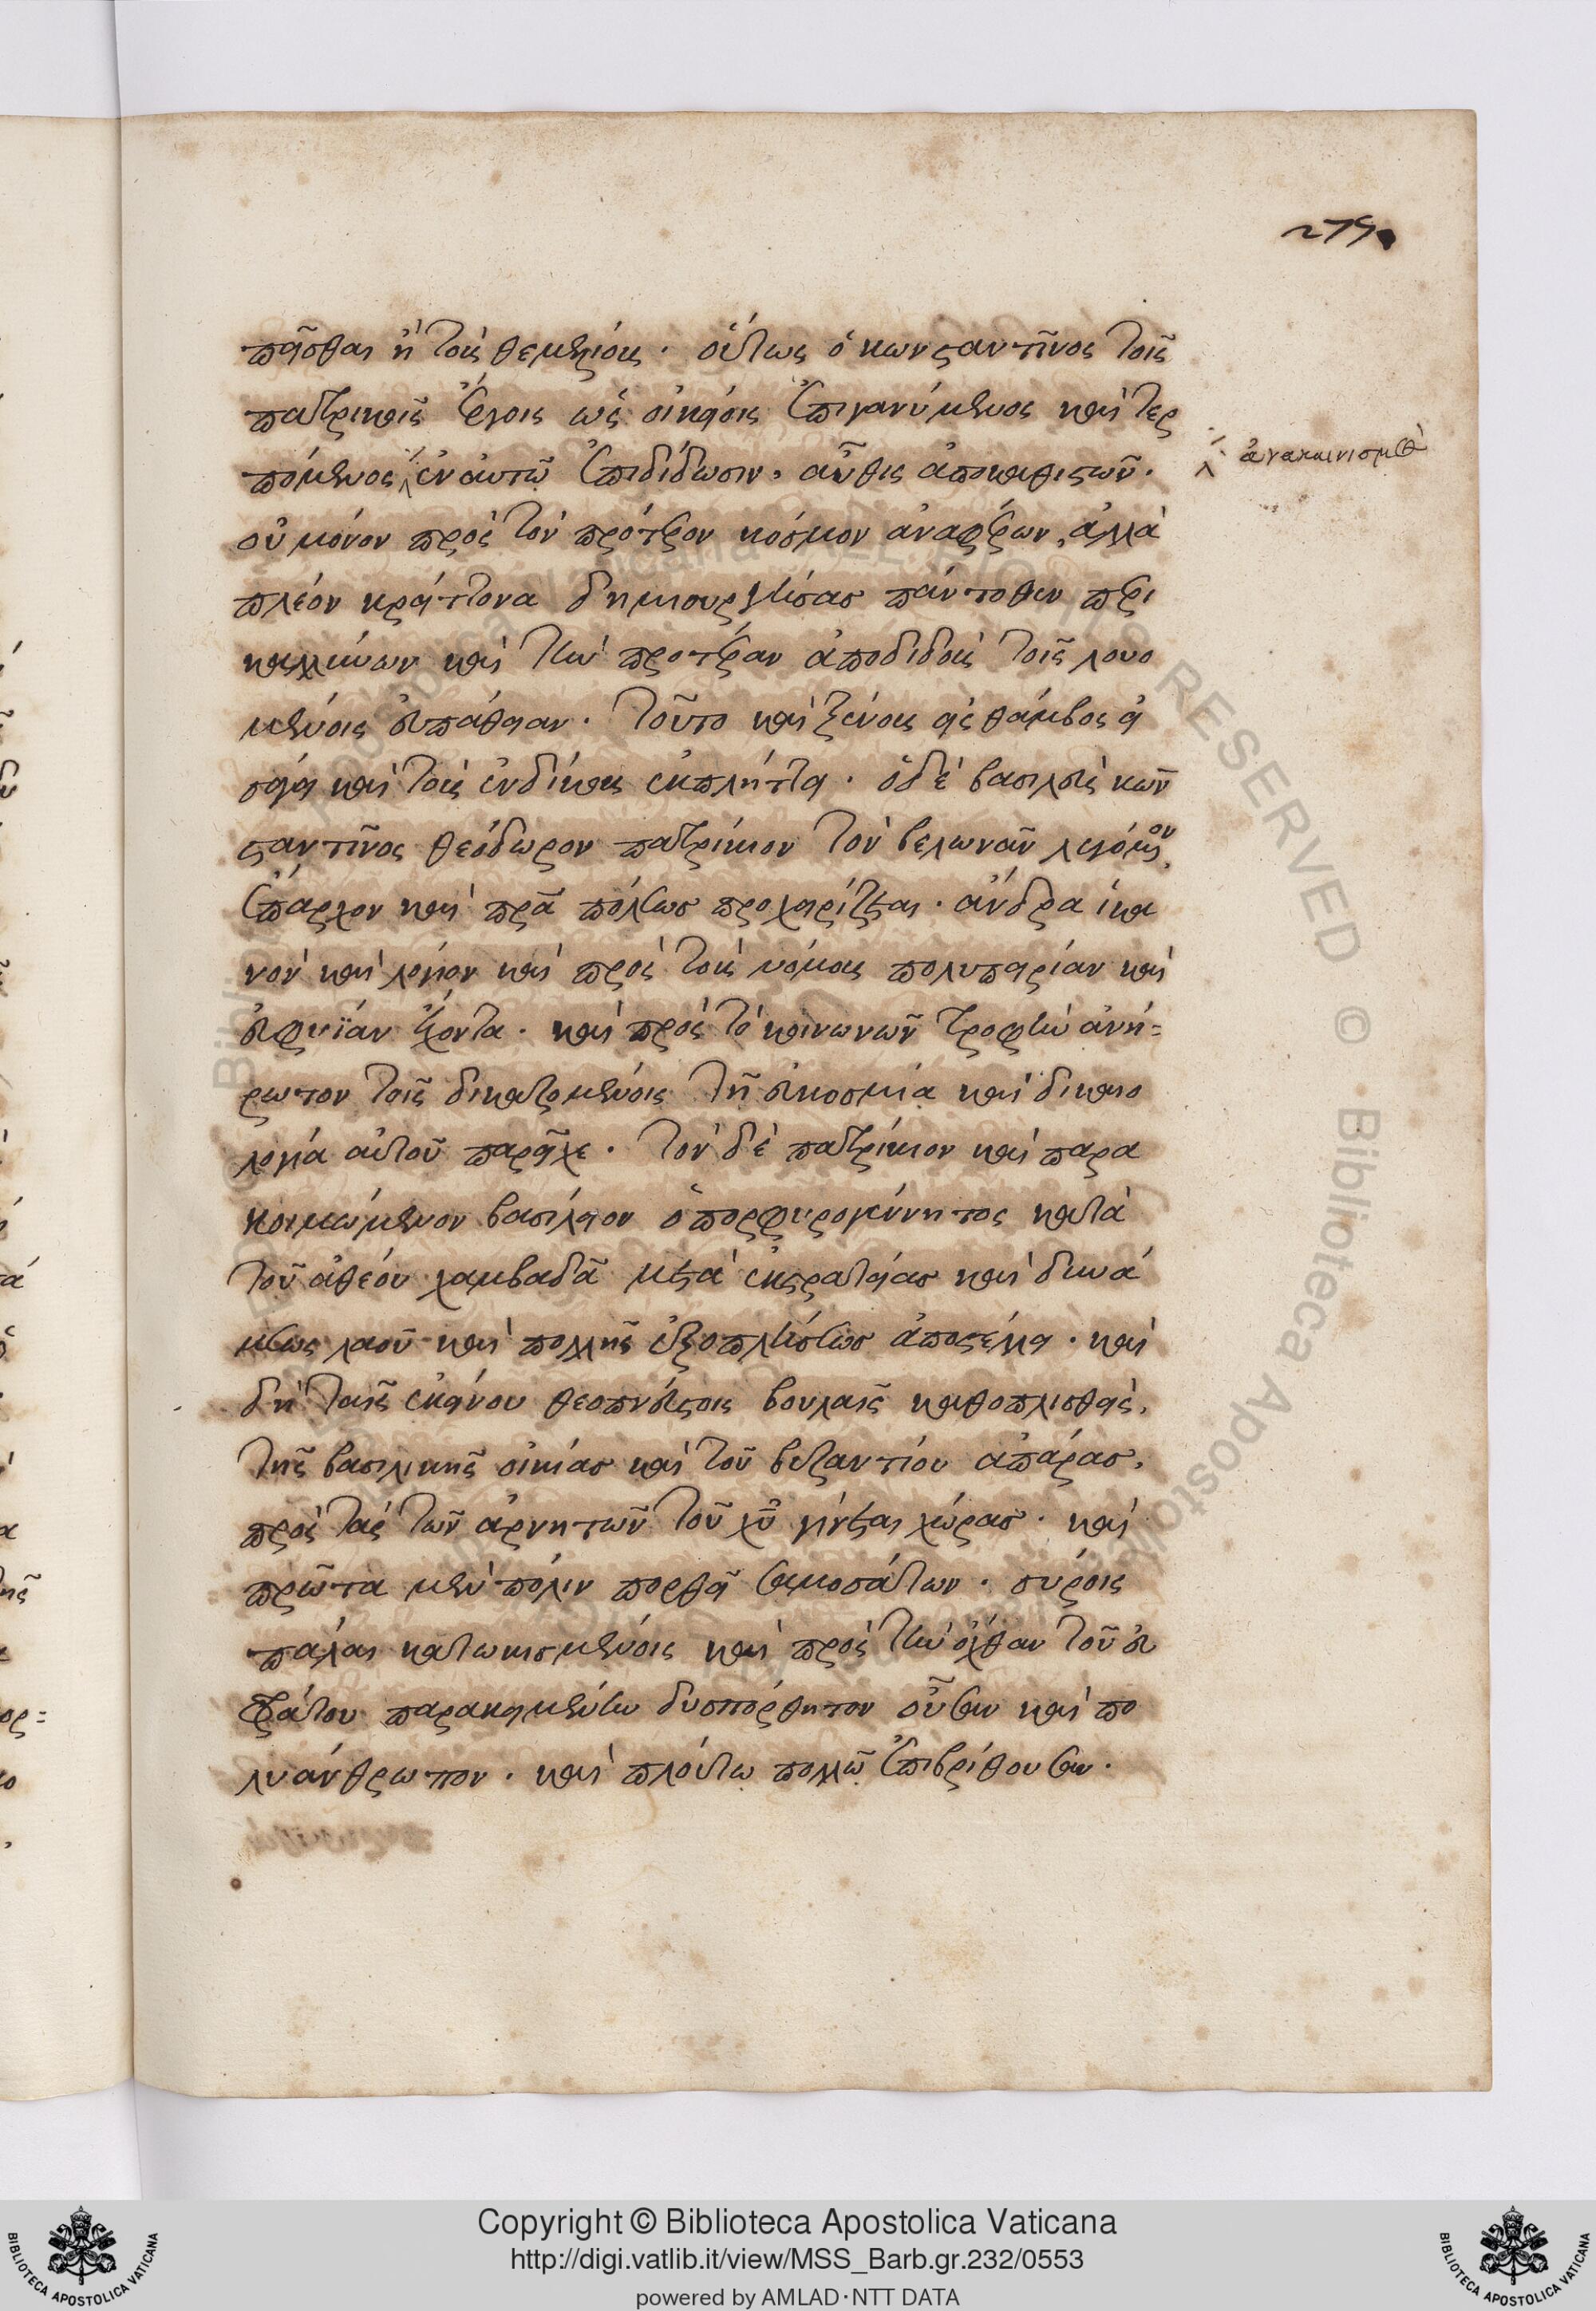 275.
πεῖσθαι ἢ τοὺς θεμελίους. οὕτως ὁ κωνσταντῖνος τοῖς
πατρικοῖς ἔργοις ὡς οἰκείοις ἐπιγανύμενος καὶ τερ
πόμενος ἐν αὐτῶ ἐπιδίδωσιν, αὖθις ἀποκαθιστῶν.
ἀνακαινισμὸν
οὐ μόνον πρὸς τὸν πρότερον κόσμον ἀναφέρων, ἀλλὰ
πλέον κρείττονα δημιουργήσας πάντοθεν περι
καλλύνων καὶ τὴν προτέραν ἀποδιδοὺς τοῖς λουο
μένοις εὐπάθειαν. τοῦτο καὶ ξένους εἰς θάμβος εἰ
σάγει καὶ τοὺς ἐνδίκους ἐκπλήττει. ὁ δὲ βασιλεὺς κων
σταντῖνος θεόδωρον πατρίκιον τὸν βελωνᾶν λεγόμενον,
ἔπαρχον καὶ πρα πόλεως προχειρίζεται. ἄνδρα ἱκα
νὸν καὶ λόγιον καὶ πρὸς τοὺς νόμους πολυπειρίαν καὶ
εὐφυΐαν ἔχοντα. καὶ πρὸς τὸ κοινωνῶν τροφὴν ἀνή=
ρωτον τοῖς δικαζομένοις τῆ εὐκοσμία καὶ δικαιο
λογία αὐτοῦ παρεῖχε. τὸν δὲ πατρίκιον καὶ παρα
κοιμώμενον βασίλειον ὁ πορφυρογέννητος κατὰ
τοῦ ἀθέου χαμβαδᾶ μετὰ ἐκστρατείας καὶ δυνά
μεως λαοῦ καὶ πολλῆς ἐξοπλίσεως ἀποστέλλει. καὶ
δὴ ταῖς ἐκείνου θεοπνεύστοις βουλαῖς καθοπλισθεὶς,
τῆς βασιλικῆς οἰκίας καὶ τοῦ βυζαντίου ἀπάρας,
πρὸς τὰς τῶν ἀρνητῶν τοῦ χῦ γίνεται χώρας. καὶ
πρῶτα μὲν πόλιν πορθεῖ σαμοσάτων. σύροις
πάλαι κατωκισμένοις καὶ πρὸς τὴν ὄχθαν τοῦ εὐ
φράτου παρακειμένην δυσπόρθητον οὖσαν καὶ πο
λυάνθρωπον. καὶ πλούτω πολλῶ ἐπιβρίθουσαν.
Copyright © Biblioteca Apostolica Vaticana
http://digi.vatlib.it/view/MSS_Barb.gr.232/0553
powered by AMLAD·NTT DATA
BIBLIOTECA APOSTOLICA VATICANA
BIBLIOTECA APOSTOLICA VATICANA